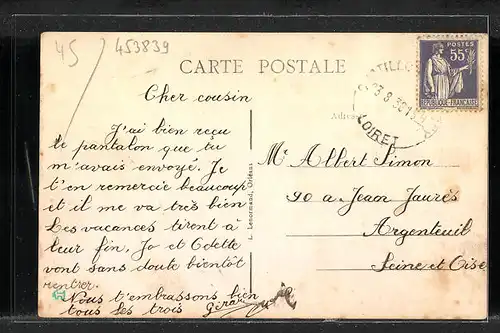 45
453839
CARTE POSTALE
POSTES
55c
REPUBLIQUE FRANÇAISE
LOIRET
Cher cousin
J'ai bien reçu
le pantalon que tu
m'avais envoyé. Je
t'en remercie beaucoup
et il me va très bien
Les vacances tirent à
leur fin. Jo et Odette
vont sans doute bientôt
rentrer.
Nous t'embrassons bien
tous les trois
L. Lenormand, Orléans
Adresse
Mr Albert Simon
90 a Jean Jaurès
Argenteuil
Seine et Oise